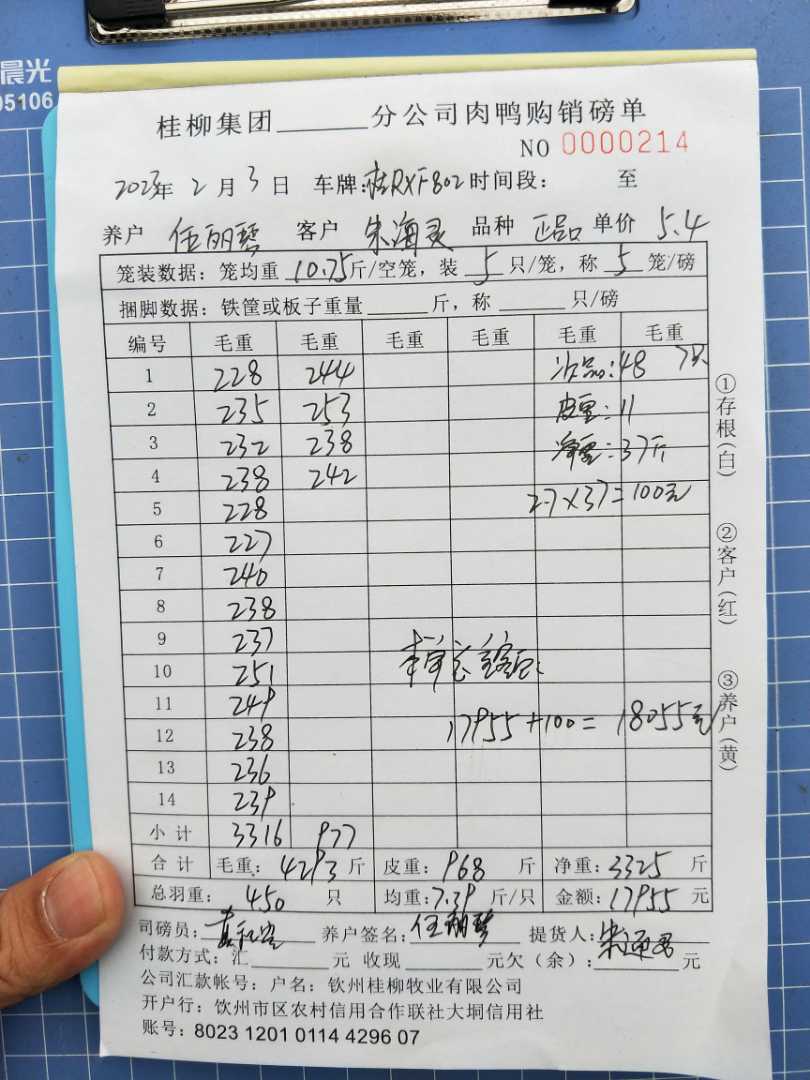 晨光
95106
桂柳集团______分公司肉鸭购销磅单
NO 0000214
2023年 2 月 3 日 车牌:桂RXF802 时间段: 至
养户 任丽琴 客户 朱海灵 品种 正品 单价 5.4
笼装数据:笼均重 10.75 斤/空笼,装 5 只/笼,称 5 笼/磅
捆脚数据:铁筐或板子重量______斤,称______只/磅
编号 毛重 毛重 毛重 毛重 毛重 毛重
1 228 244 次品:48 7只
2 235 253 皮重:11
3 232 238 净重:37斤
4 238 242
5 228 2.7×37=100元
6 227
7 240
8 238
9 237
10 251 本单总金额:
11 249
12 238 17955+100=18055元
13 236
14 239
小计 3316 977
合计 毛重: 4293 斤 皮重: 968 斤 净重: 3325 斤
总羽重: 450 只 均重: 7.39 斤/只 金额: 17955 元
司磅员: 养户签名: 任丽琴 提货人:
付款方式:汇______元 收现______元欠(余):______元
公司汇款帐号:户名:钦州桂柳牧业有限公司
开户行:钦州市区农村信用合作联社大垌信用社
账号:8023 1201 0114 4296 07
①存根(白)
②客户(红)
③养户(黄)